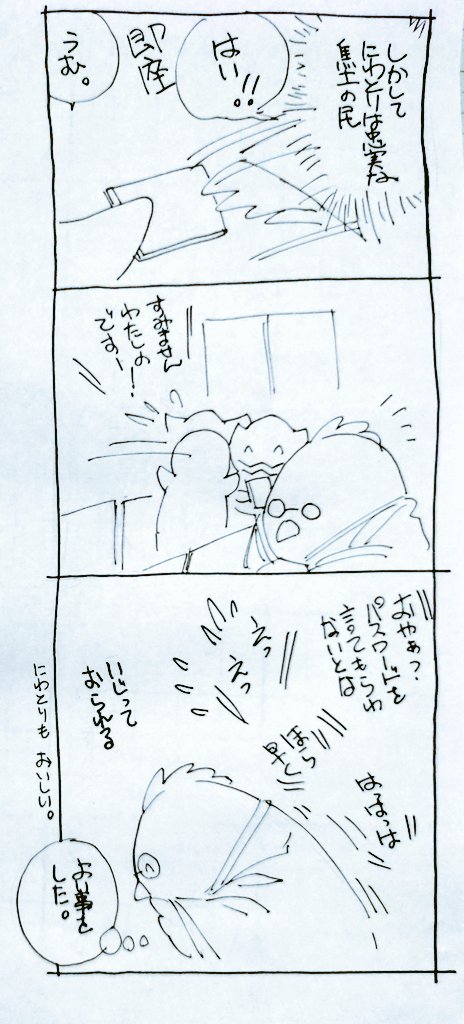 しかして
にわとりは忠実な
馬土の民
はい!!
即座
うむ。
すみません
わたしの!
ですー
おやぁ?
パスワードを
言ってもらわ
ないとな
えっ
えっ
ほら
早く
はほっは
いじって
おられる
よい事を
した。
にわとりも おいしい。